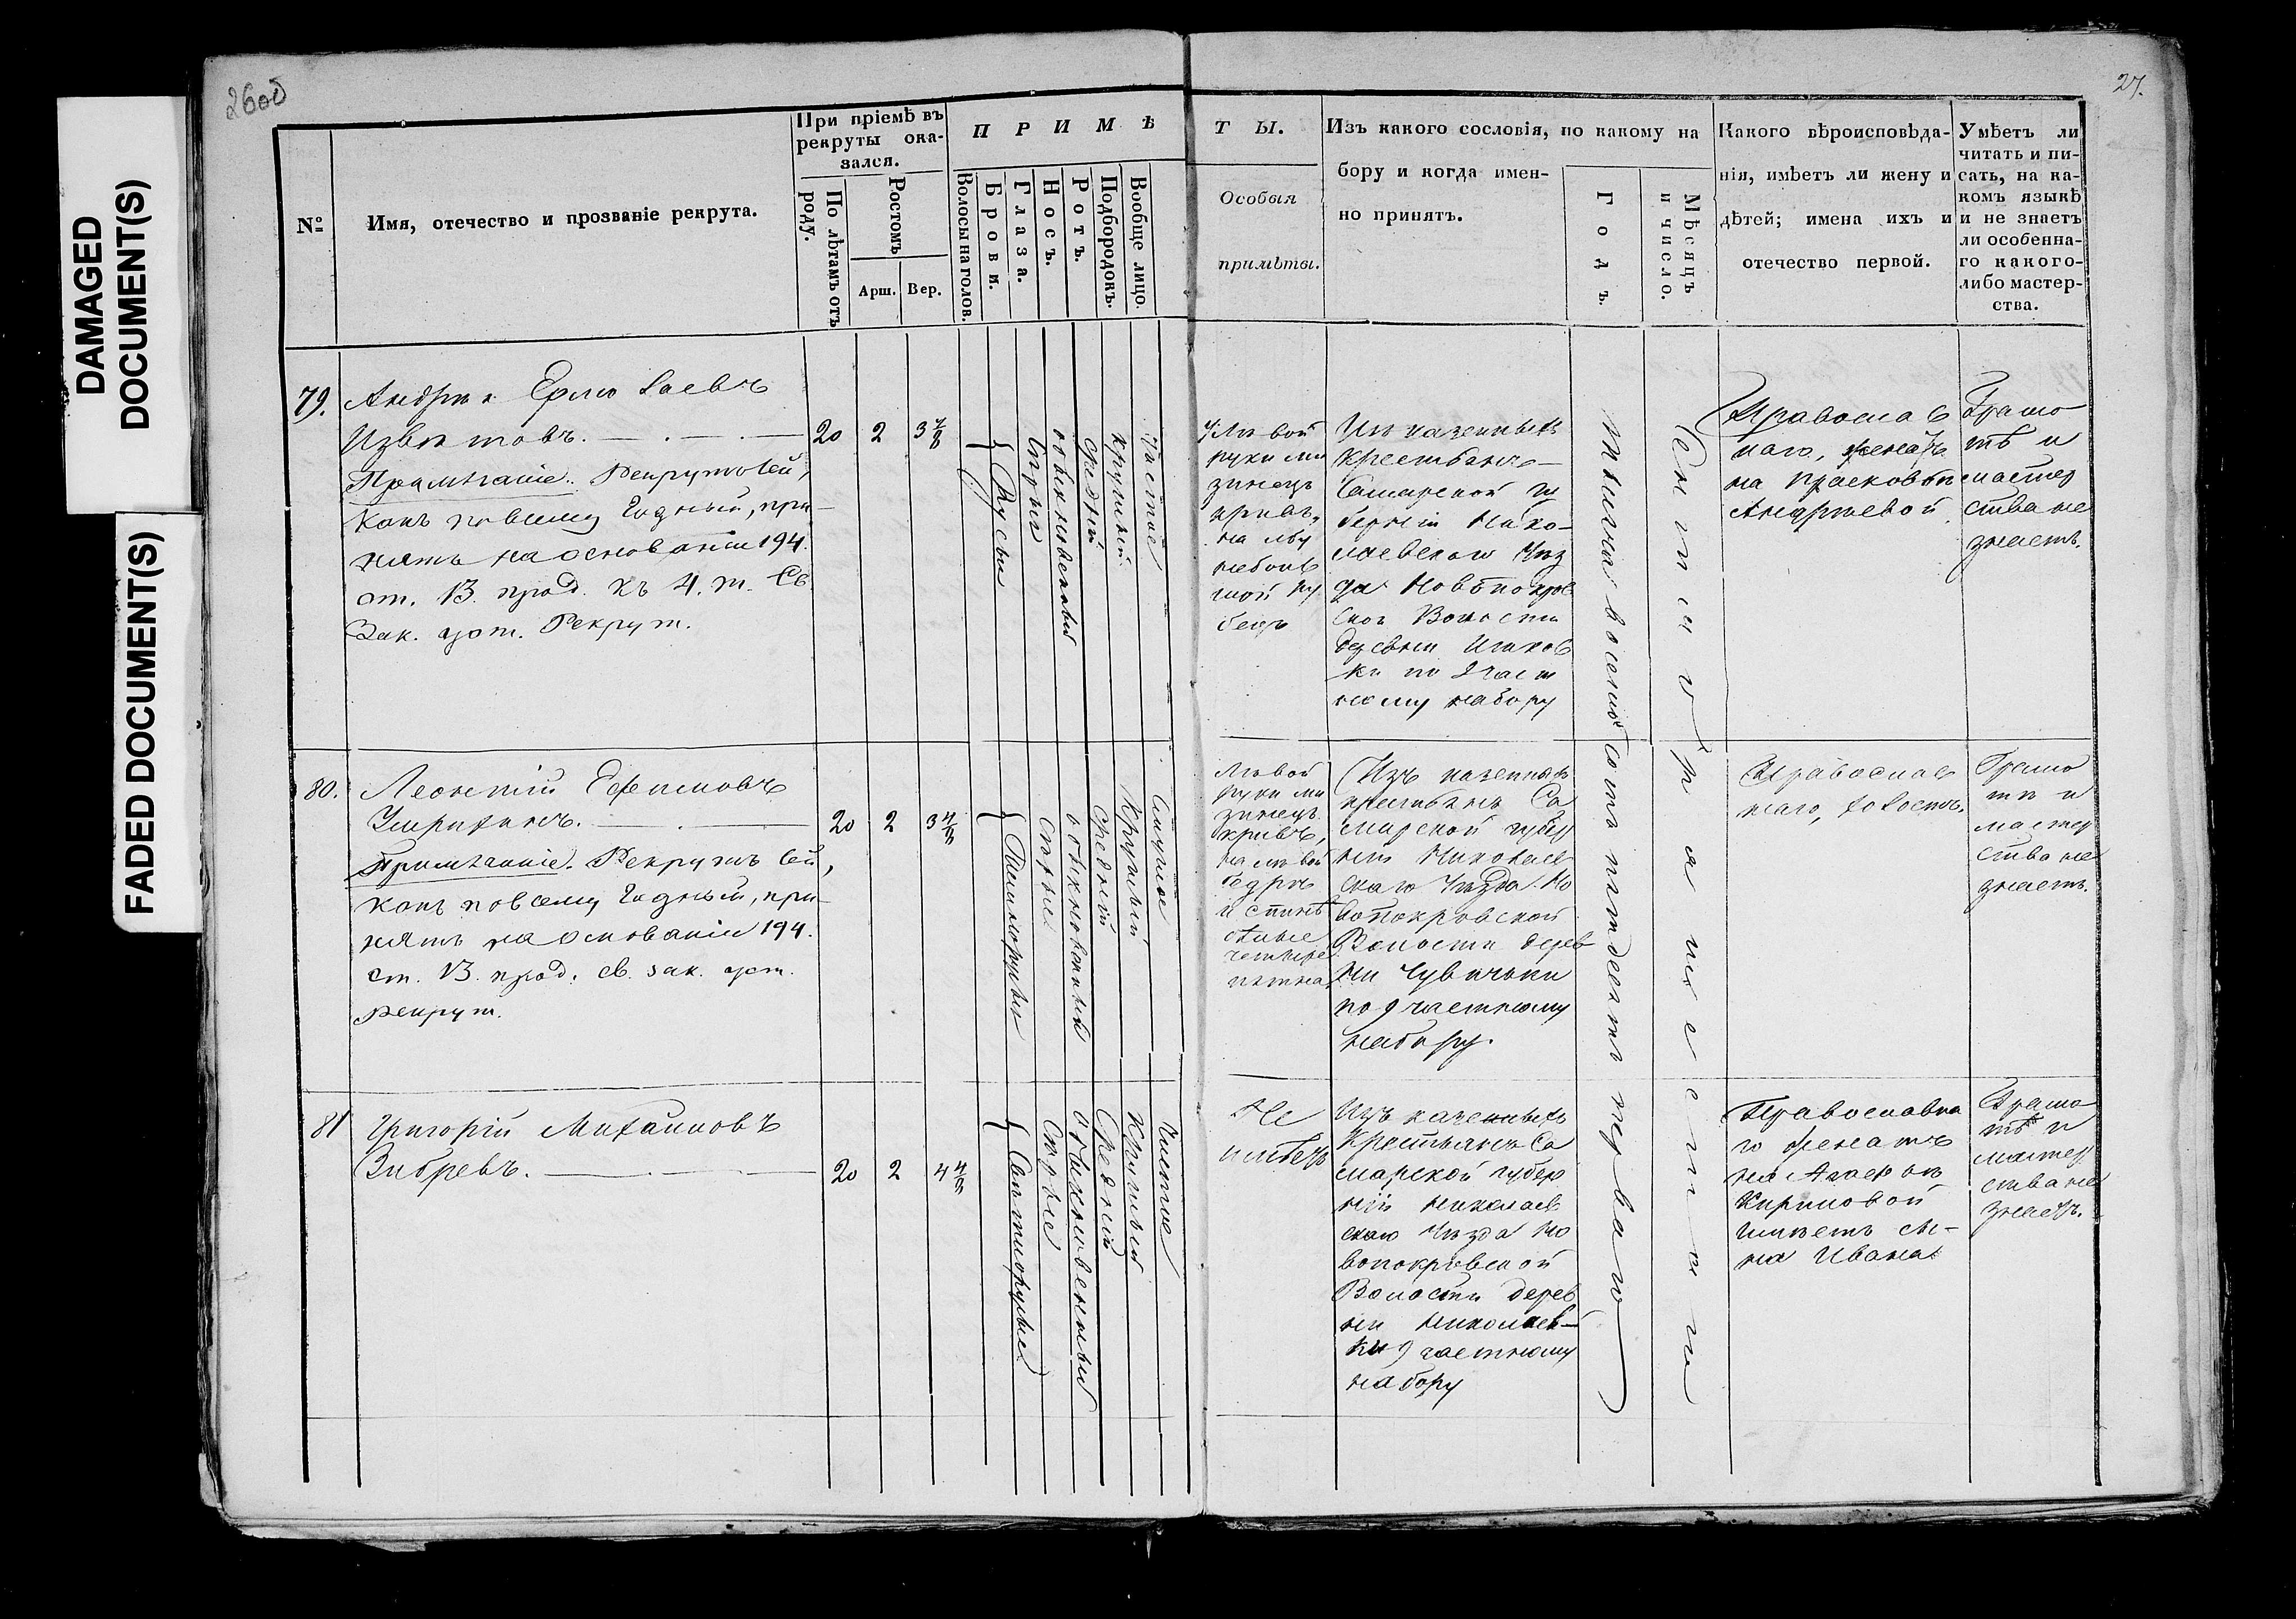 DAMAGED
DOCUMENT(S)
FADED DOCUMENT(S)
26об
27.
№
Имя, отечество и прозваніе рекрута.
При пріемѣ въ
рекруты ока-
зался.
По лѣтамъ отъ
роду.
Ростомъ
Арш.
Вер.
П Р И М Ѣ
Волосы на голов.
Брови.
Глаза.
Носъ.
Ротъ.
Подбородокъ.
Вообще лицо.
Т Ы.
Особыя
примѣты.
Изъ какого сословія, по какому на
бору и когда имен-
но принятъ.
Годъ.
Мѣсяцъ
и число.
Какого вѣроисповѣда-
нія, имѣетъ ли жену и
дѣтей; имена ихъ и
отечество первой.
Умѣетъ ли
читать и пи-
сать, на ка-
комъ языкѣ
и не знаетъ
ли особенна-
го какого-
либо мастер-
ства.
79.
Андрей Ермолаевъ
Извѣковъ.
20 2 3 7/8
Примѣчаніе. Рекрутъ сей,
какъ повсему годный, при-
нятъ на основаніи 194.
ст. 13. прод. къ 4. т. Св.
Зак. уст. Рекрут.
Русыя
Сѣрые
обыкновенный
средній
круглый
чистое
у лѣвой
руки ми
зинецъ
кривъ,
на лбу
неболь
шой ру
бецъ
Из казенныхъ
крестьянъ
Самарской гу
берніи Нико-
лаевскаго Уѣз
да Новопокров
ской Волости
деревни
ки по 9 част
ному набору
Православ
наго, женатъ
на Прасковьи
Андреевой
Грамо
тѣ и
мастер
ства не
знаетъ.
Тысяча восемьсотъ пятдесятъ перваго
Сентября шестаго
80.
Леонтій Ефимовъ
20 2 3 4/8
Примѣчаніе. Рекрутъ сей,
какъ повсему годный, при-
нятъ на основаніи 194.
ст. 13. прод. св. зак. уст.
рекрут.
Темнорусые
Сѣрые
обыкновенный
средній
Круглый
Лѣвой
руки ми
зинецъ
кривъ,
на лѣвой
бедрѣ
и спинѣ
бѣлые
четыре
пятна
Изъ казенныхъ
крестьянъ Са
марской губер
ніи Николаев
скаго Уѣзда Но
вопокровской
Волости дерев
ни
по 9 частному
набору.
Православ
наго, холостъ.
Грамо
тѣ и
мастер
ства не
знаетъ.
81
Григорій Михайловъ
Зибревъ.
20 2 4 4/8
Свѣтлорусые
Сѣрые
обыкновенный
Средній
Круглый
Чистое
Не
имѣетъ
Изъ казенныхъ
Крестьянъ Са
марской губер
ніи Николаев
скаго Уѣзда Но
вопокровской
Волости дерев
ни Николаев-
ки 9 частному
набору
Православна
го женатъ
на
Кириловой
имѣетъ сы-
на Ивана
Грамо
тѣ и
мастер
ства не
знаетъ.